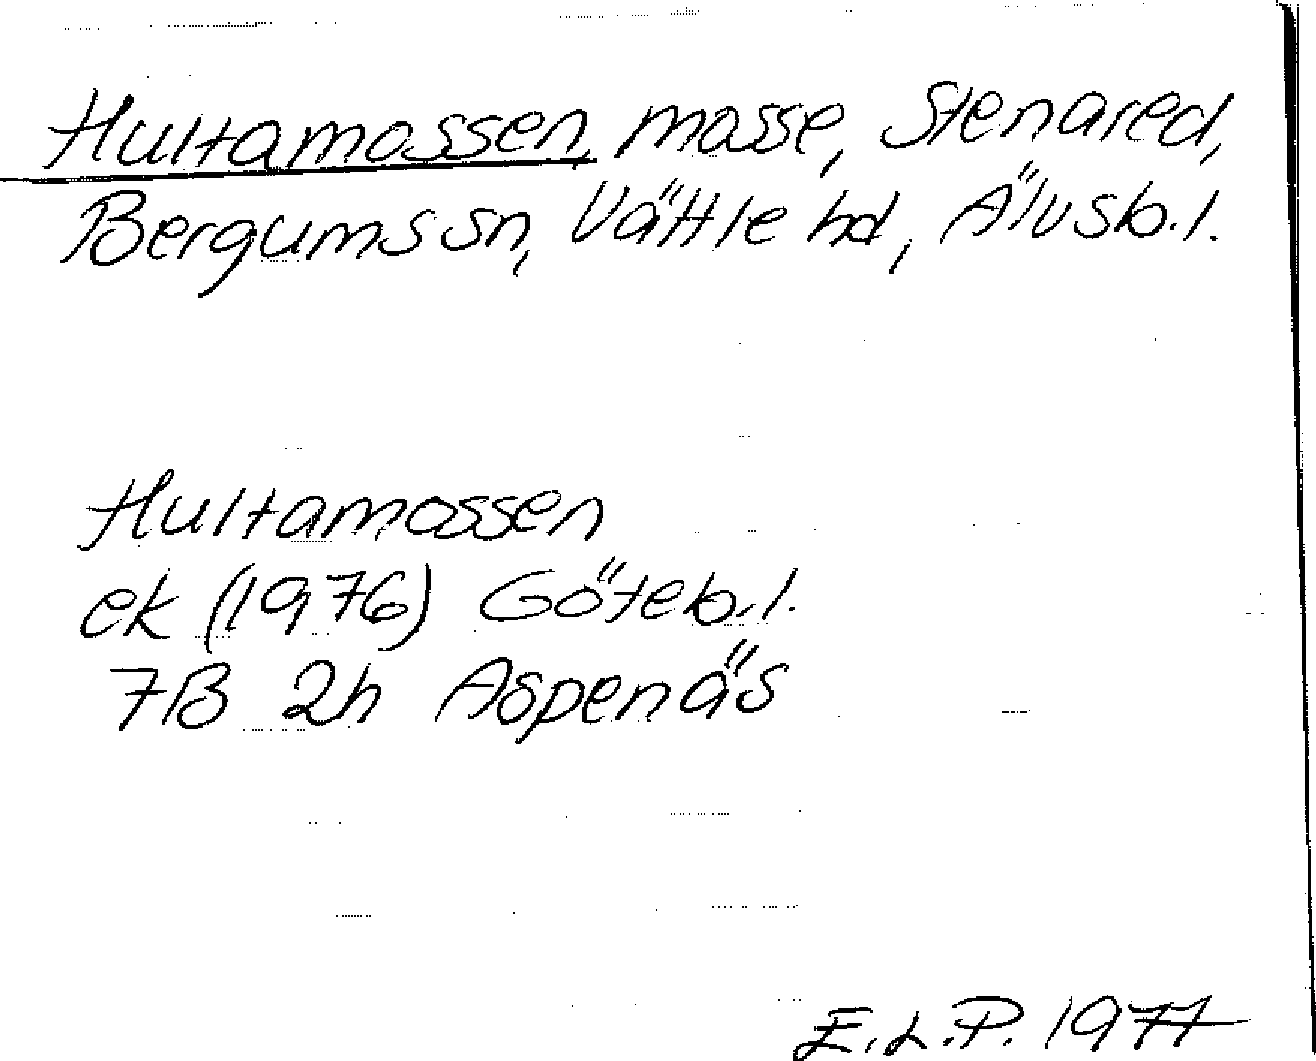 Hultamossen, mosse, Stenared,
Bergums sn, Vättle hd, Älvsb.l.
Hultamossen
ek (1976) Göteb.l.
7B 2h Aspenäs
E.L.P. 1977